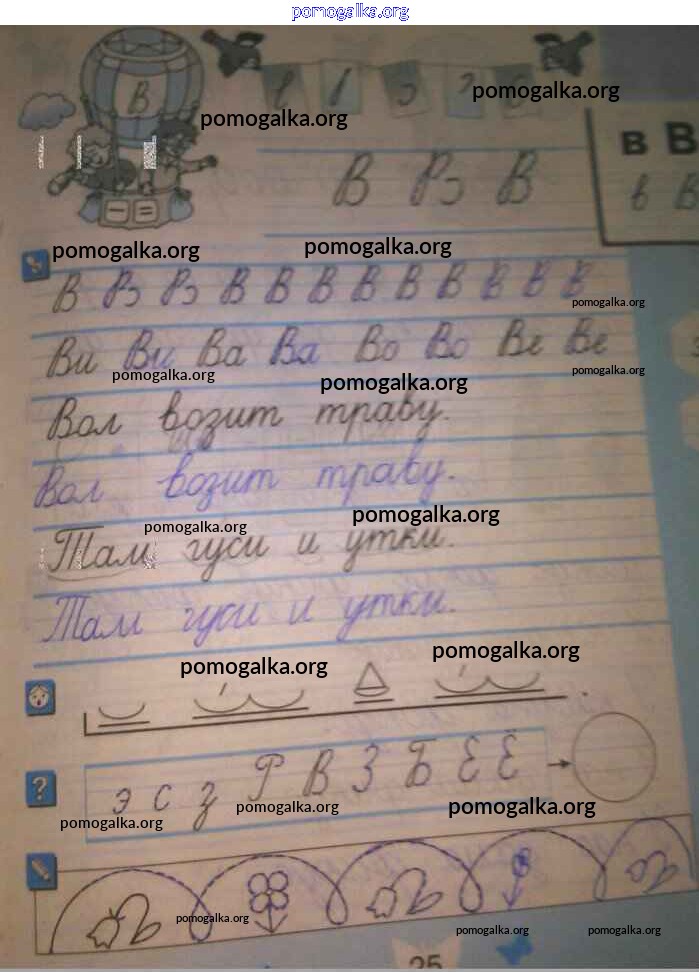 pomogalka.org
В
pomogalka.org
pomogalka.org
в В
В Рз В
в В
pomogalka.org
pomogalka.org
В Рз Рз В В В В В В В В В
pomogalka.org
Ви Ви Ва Ва Во Во Ве Ве
pomogalka.org
pomogalka.org
pomogalka.org
Вол возит траву.
Вол возит траву.
pomogalka.org
pomogalka.org
Там гуси и утки.
Там гуси и утки.
pomogalka.org
pomogalka.org
?
э с з Р В З Б Е Ё
pomogalka.org
pomogalka.org
pomogalka.org
pomogalka.org
pomogalka.org
pomogalka.org
25